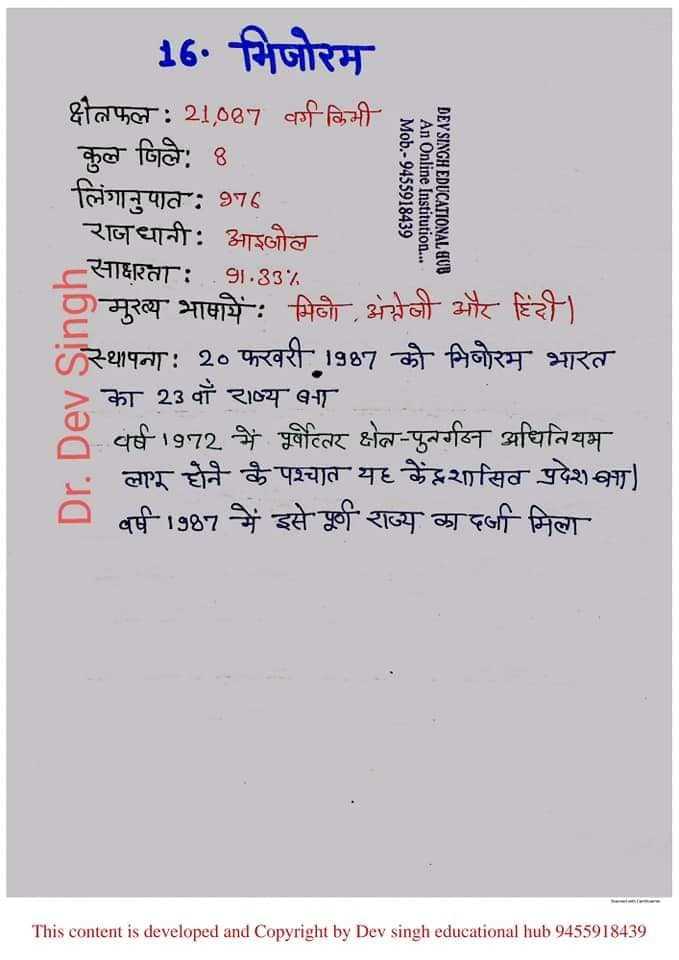 16. मिजोरम
क्षेत्रफल : 21,087 वर्ग किमी
कुल जिले: 8
लिंगानुपात : 976
राजधानी : आइजोल
साक्षरता : 91.33%
मुख्य भाषायें : मिजो, अंग्रेजी और हिंदी।
स्थापना : 20 फरवरी 1987 को मिजोरम भारत
का 23 वाँ राज्य बना
वर्ष 1972 में पूर्वोत्तर क्षेत्र-पुनर्गठन अधिनियम
लागू होने के पश्चात यह केंद्रशासित प्रदेश बना।
वर्ष 1987 में इसे पूर्ण राज्य का दर्जा मिला
DEV SINGH EDUCATIONAL HUB
An Online Institution...
Mob.- 9455918439
Dr. Dev Singh
This content is developed and Copyright by Dev singh educational hub 9455918439